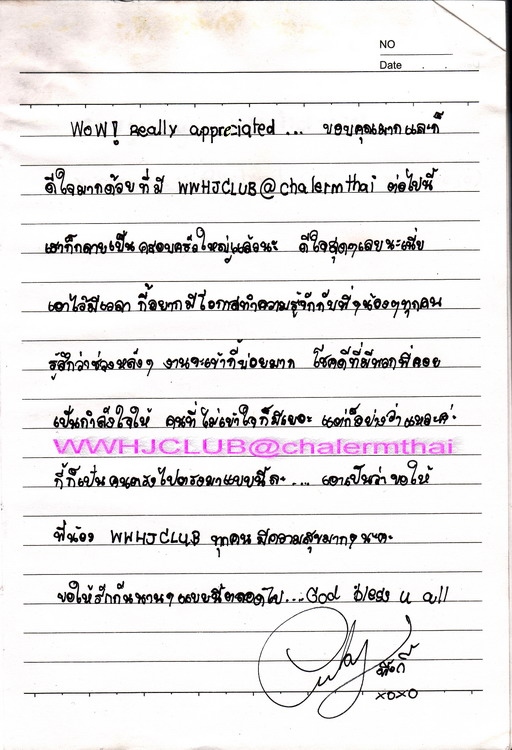 NO
Date . .
WoW! Really appreciated ... ขอบคุณมากและก็
ดีใจมากด้วยที่มี WWHJCLUB@chalermthai ต่อไปนี้
เราก็กลายเป็นครอบครัวใหญ่แล้วนะ ดีใจสุดๆเลยนะเนี่ย
เอาไว้มีเวลา กี้อยากมีโอกาสทำความรู้จักกับพี่ๆน้องๆทุกคน
รู้สึกว่าช่วงหลังๆ งานจะเข้ากี้บ่อยมาก โชคดีที่มีพวกพี่คอย
เป็นกำลังใจให้ คนที่ไม่เข้าใจก็มีเยอะ แต่ก็อย่างว่าแหละค่ะ
WWHJCLUB@chalermthai
กี้ก็เป็นคนตรงไปตรงมาแบบนี้ละ .... เอาเป็นว่า ขอให้
พี่น้อง WWHJCLUB ทุกคน มีความสุขมากๆ นะคะ
ขอให้รักกันนานๆแบบนี้ตลอดไป...God bless u all
xoxo